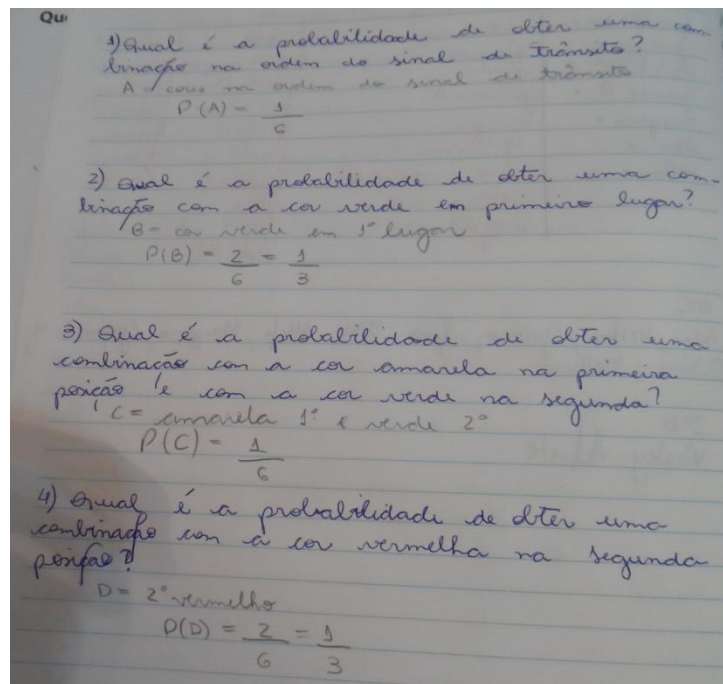 Qu
1) Qual é a probabilidade de obter uma com
binação na ordem do sinal de trânsito?
A = cores na ordem do sinal de trânsito
P(A) = 1
6
2) Qual é a probabilidade de obter uma com-
binação com a cor verde em primeiro lugar?
B = cor verde em 1º lugar
P(B) = 2 = 1
6 3
3) Qual é a probabilidade de obter uma
combinação com a cor amarela na primeira
posição e com a cor verde na segunda?
C = amarela 1ª e verde 2º
P(C) = 1
6
4) Qual é a probabilidade de obter uma
combinação com a cor vermelha na segunda
posição?
D = 2º vermelho
P(D) = 2 = 1
6 3